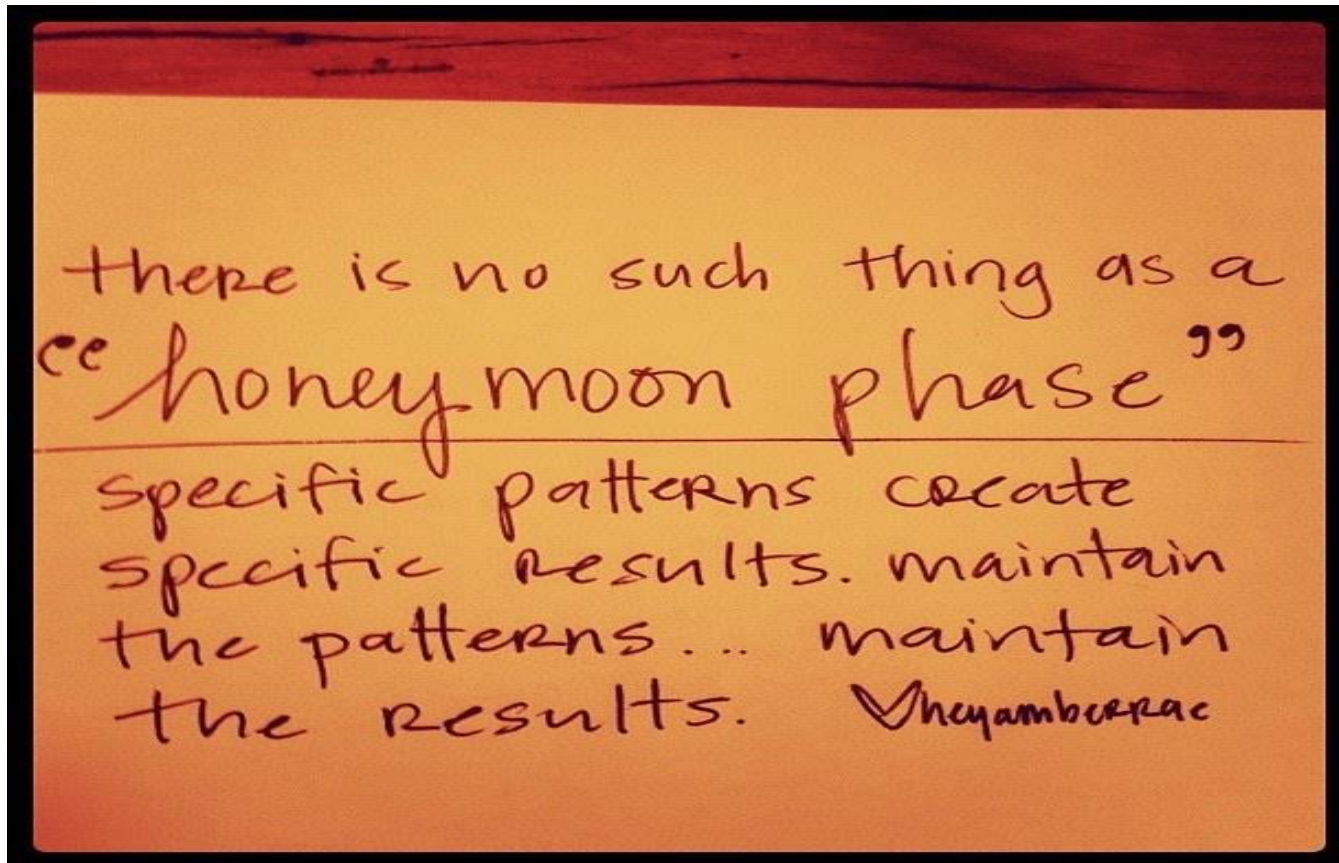 there is no such thing as a
“honeymoon phase”
specific patterns create
specific results. maintain
the patterns... maintain
the results. ♡heyamberrae